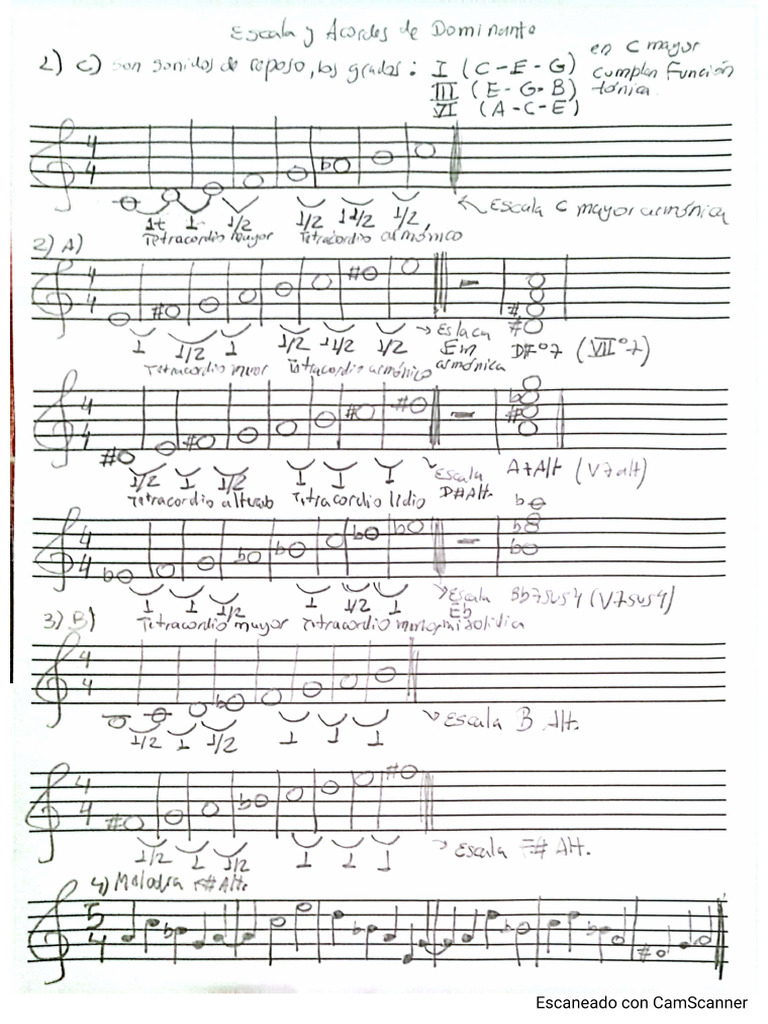 Escala y Acordes de Dominante
2) C) Son sonidos de reposo, los grados: I (C-E-G) en C mayor
III (E-G-B) cumplen Función
VI (A-C-E) tónica
4 4
1t 1 1/2 1/2 1 1/2 1/2
Tetracordio mayor Tetracordio armónico
Escala C mayor armónica
2) A)
4 4
1 1/2 1 1/2 1 1/2 1/2
Tetracordio menor Tetracordio armónico
Escala Em armónica
D#°7 (VII°7)
4 4
1/2 1 1/2 1 1 1
Tetracordio alterado Tetracordio lidio
Escala D#Alt.
A7Alt (V7alt)
4 4
1 1 1/2 1 1/2 1
Tetracordio mayor Tetracordio
Escala Eb
Bb7sus4 (V7sus4)
3) B)
4 4
1/2 1 1/2 1 1 1
Escala B Alt.
4 4
1/2 1 1/2 1 1 1
Escala F# Alt.
4) Melodía F# Alt.
5 4
Escaneado con CamScanner